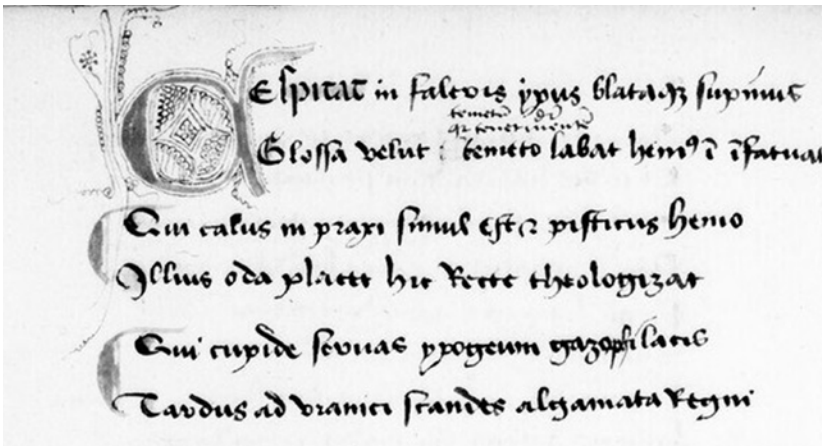 CEspitat in faleris ypus blataqꝫ supinus
temetū dr̄
qr tenet mentē
Glossa velut temeto labat hemꝰ ī īfatuat
Qui calus in praxi simul est ⁊ pisticus hemo
Illius oda placet hic Recte theologizat
Qui cupide seruas ypogeum gazophilacis
Tardus ad vranici scandes algamata Regni